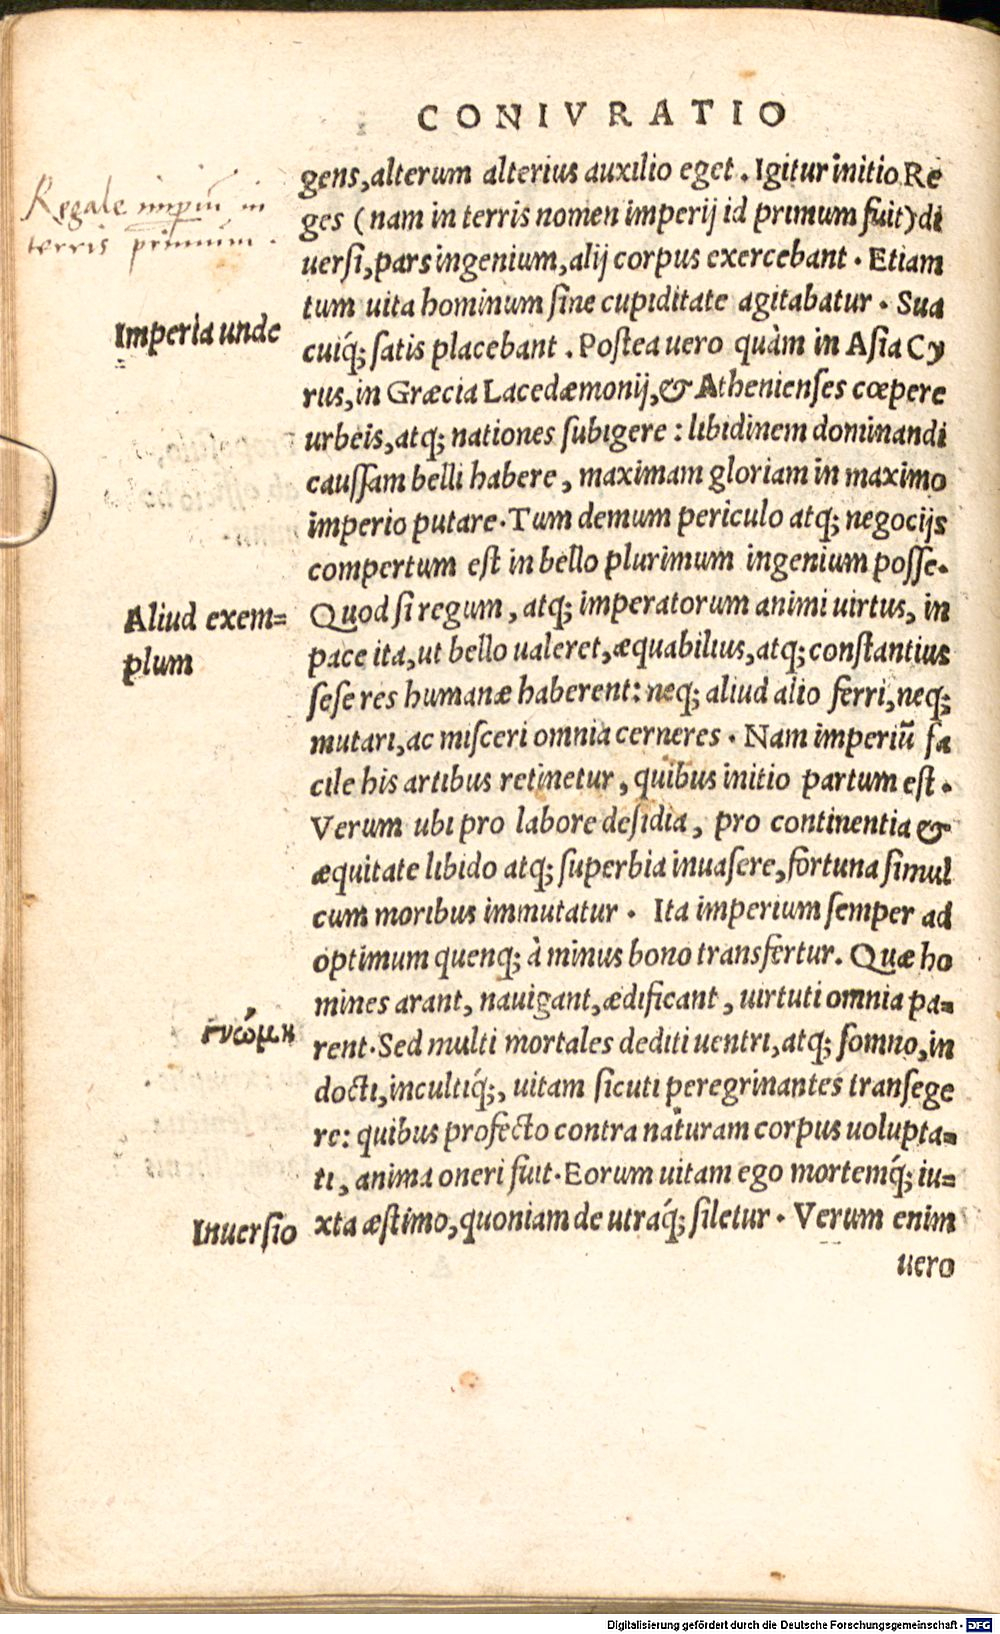 CONIVRATIO
gens, alterum alterius auxilio eget. Igitur initio Re
ges (nam in terris nomen imperij id primum fuit) di
uersi, pars ingenium, alij corpus exercebant. Etiam
tum uita hominum sine cupiditate agitabatur. Sua
cuiq́; satis placebant. Postea uero quàm in Asia Cy
rus, in Græcia Lacedæmonij, & Athenienses cœpere
urbeis, atq; nationes subigere: libidinem dominandi
caussam belli habere, maximam gloriam in maximo
imperio putare. Tum demum periculo atq; negocijs
compertum est in bello plurimum ingenium posse.
Quod si regum, atq; imperatorum animi uirtus, in
pace ita, ut bello ualeret, æquabilius, atq; constantius
sese res humanæ haberent: neq; aliud alio ferri, neq;
mutari, ac misceri omnia cerneres. Nam imperiũ fa
cile his artibus retinetur, quibus initio partum est.
Verum ubi pro labore desidia, pro continentia &
æquitate libido atq; superbia inuasere, fortuna simul
cum moribus immutatur. Ita imperium semper ad
optimum quenq; à minus bono transfertur. Quæ ho
mines arant, nauigant, ædificant, uirtuti omnia pa=
rent. Sed multi mortales dediti uentri, atq; somno, in
docti, incultiq́;, uitam sicuti peregrinantes transege
re: quibus profecto contra naturam corpus uolupta=
ti, anima oneri fuit. Eorum uitam ego mortemq́; iu=
xta æstimo, quoniam de utraq́; siletur. Verum enim
uero
Regale imperiũ in
terris primum.
Imperia unde
Aliud exem=
plum
γνώμη
Inuersio
Digitalisierung gefördert durch die Deutsche Forschungsgemeinschaft - DFG